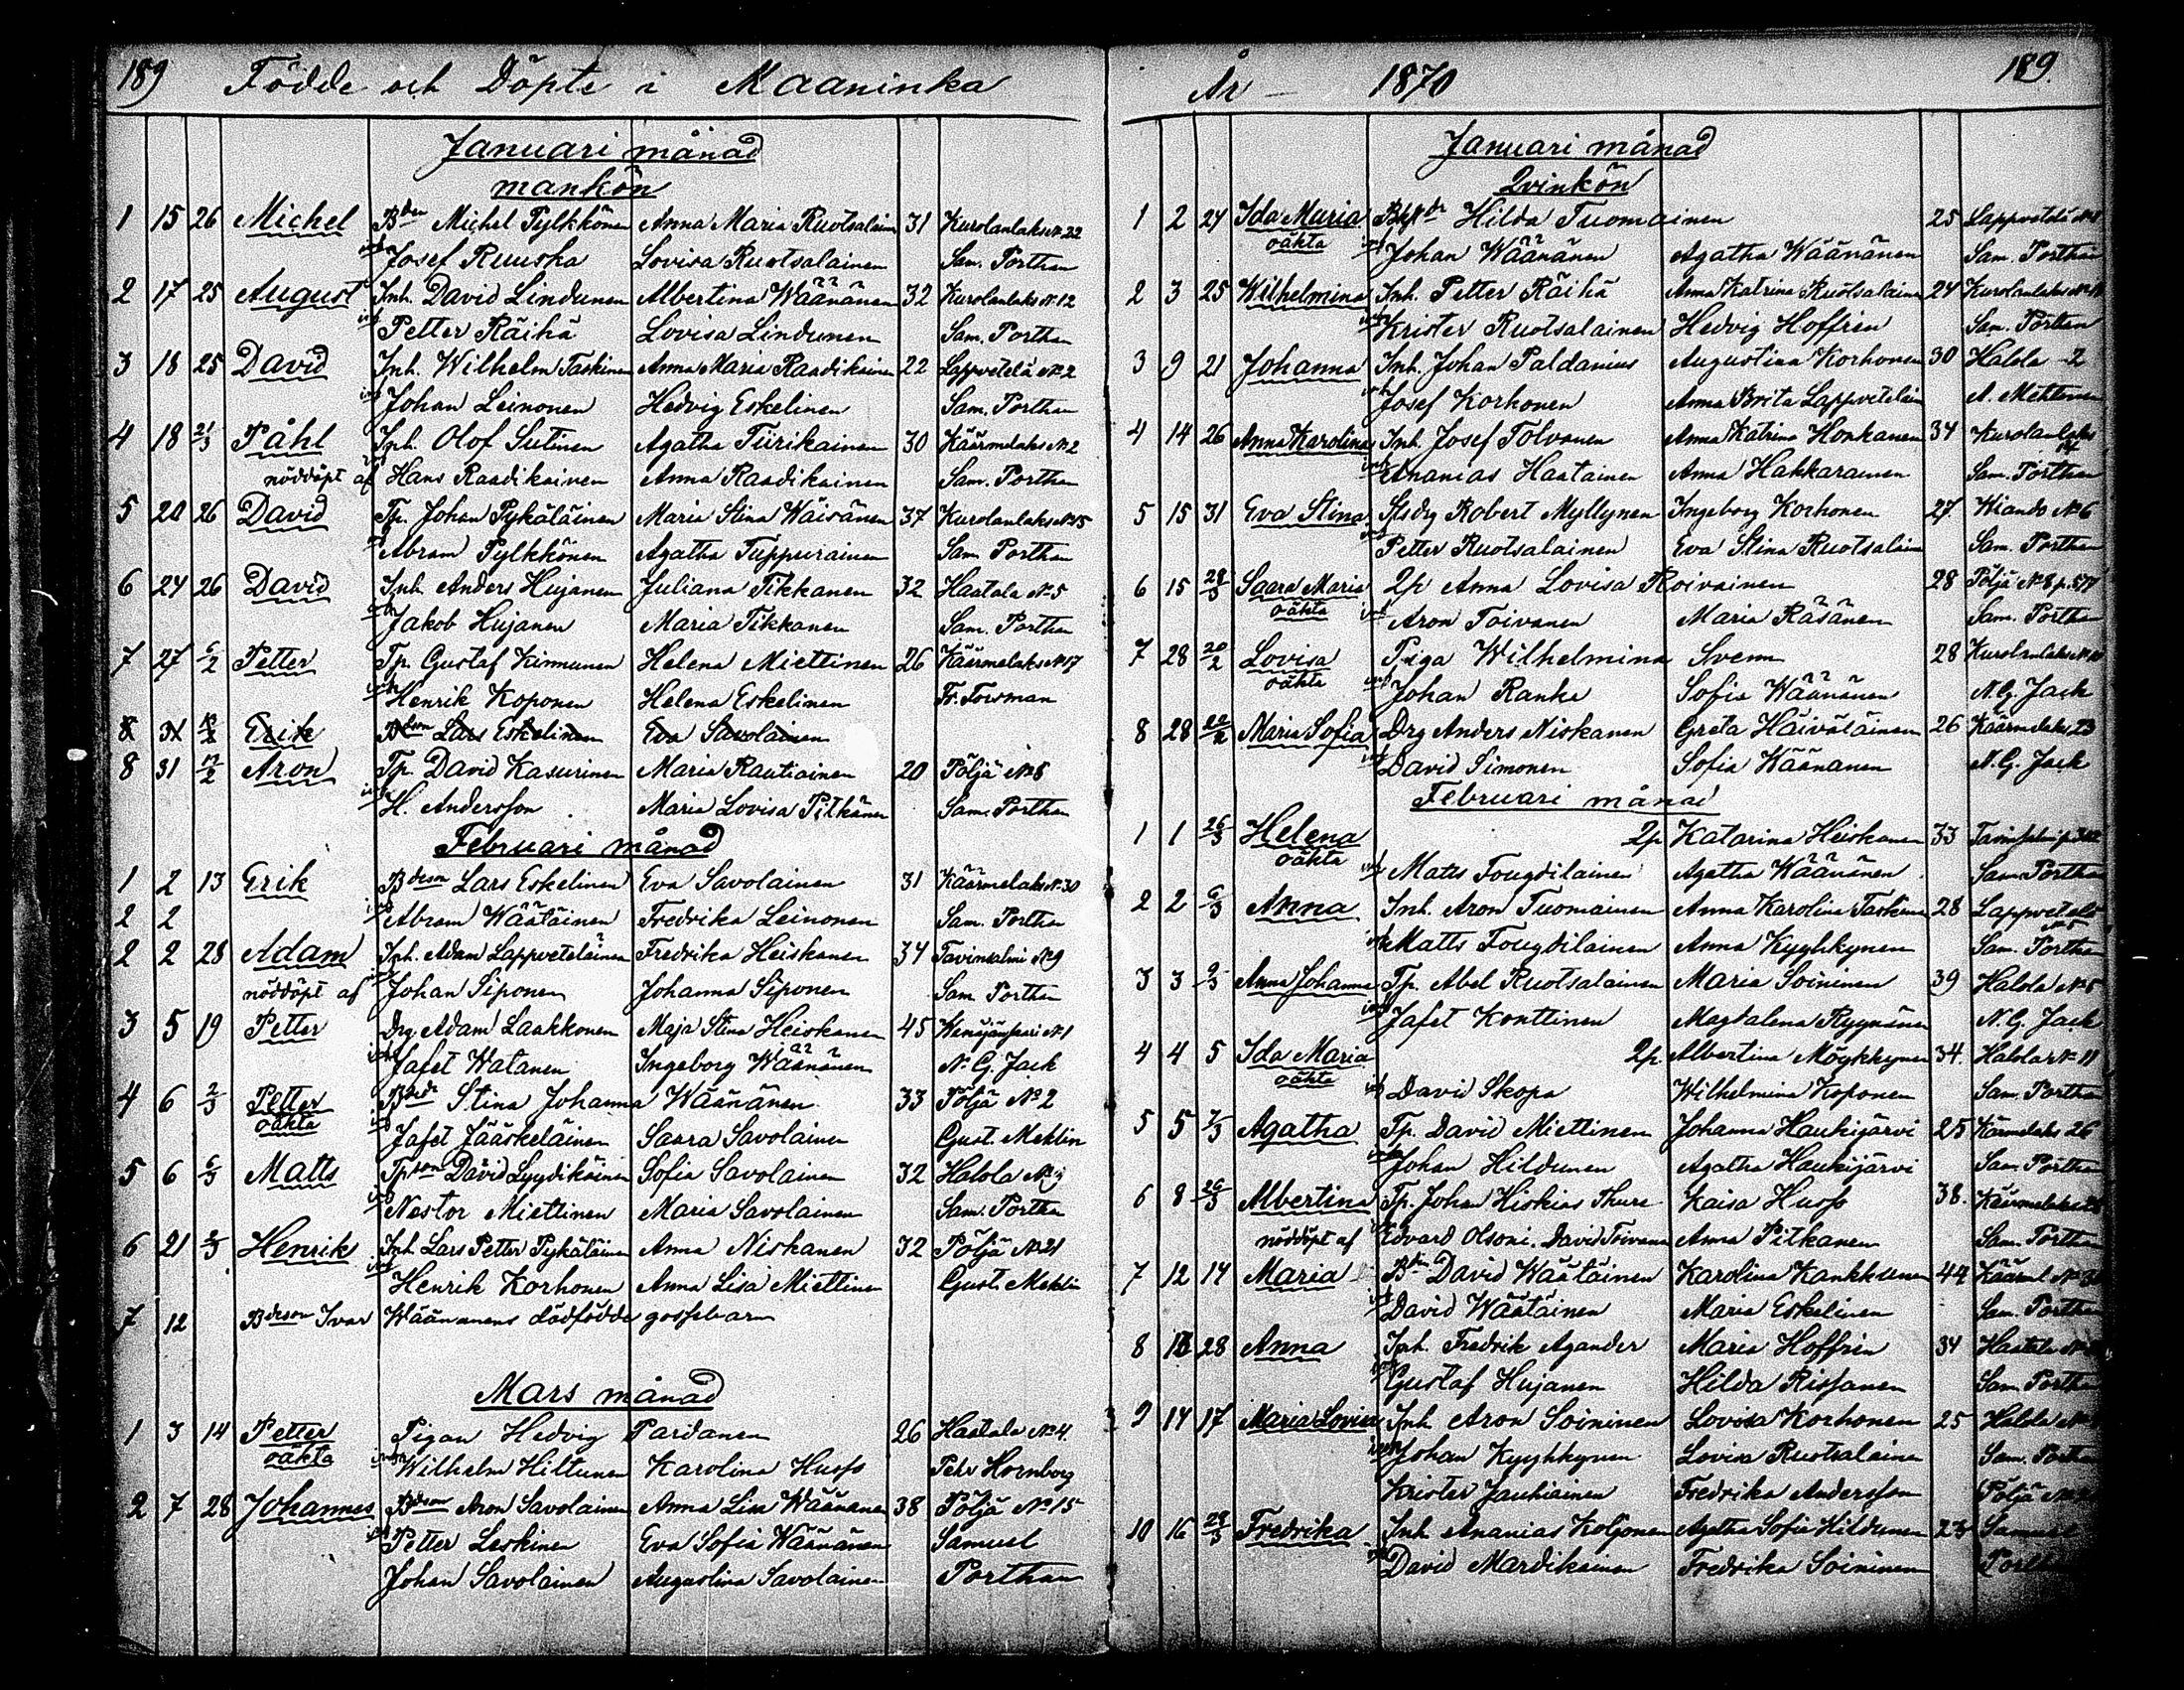 189 Födde och Döpte i Maaninka
Januari månad
mankön
1 15 26 Michel Bden Michel Pylkkönen Anna Maria Ruotsalain 31 Kurolanlaks No 22
Josef Ruuska Lovisa Ruotsalainen Sam. Porthan
2 17 25 August Inh. David Lindunen Albertina Wäänänen 32 Kurolanlaks No 12
Petter Räihä Lovisa Lindunen Sam. Porthan
3 18 25 David Inh. Wilhelm Taskinen Anna Maria Raadikainen 22 Lappvetelä No 2
Johan Leinonen Hedvig Eskelinen Sam. Porthan
4 18 21/3 Påhl Inh. Olof Sutinen Agatha Tiirikainen 30 Käärmelaks No 2
nöddöpt af Hans Raadikainen Anna Raadikainen Sam. Porthan
5 20 26 David Tp. Johan Pykäläinen Maria Stina Wäisänen 37 Kurolanlaks No 15
Abram Pylkkönen Agatha Tuppurainen Sam. Porthan
6 24 26 David Inh. Anders Hujanen Juliana Tikkanen 32 Haatala No 5
Jakob Hujanen Maria Tikkanen Sam. Porthan
7 27 6/2 Petter Tp. Gustaf Kinnunen Helena Miettinen 26 Käärmelaks No 17
Henrik Koponen Helena Eskelinen Fr. Forsman
8 31 Erik Bdeson Lars Eskelinen Eva Savolainen
8 31 12/2 Aron Tp. David Kasurinen Maria Rautiainen 20 Pöljä No 8
H. Andersson Maria Lovisa Pitkänen Sam. Porthan
Februari månad
1 2 13 Erik Bdeson Lars Eskelinen Eva Savolainen 31 Käärmelaks No 30
2 2 Abram Wäätäinen Fredrika Leinonen Sam. Porthan
2 2 28 Adam Inh. Adam Lappveteläinen Fredrika Heiskanen 34 Tavinsalmi No 9
nöddöpt af Johan Siponen Johanna Siponen Sam Porthan
3 5 19 Petter Drg. Adam Laakkonen Maja Stina Heiskanen 45 Wenäjänsaari No 1
Jafet Watanen Ingeborg Wäänänen N. G. Jack
4 6 2/3 Petter Bdedr Stina Johanna Wäänänen 33 Pöljä No 2
oäkta Jafet Jääskeläinen Saara Savolainen Gust. Meklin
5 6 6/3 Matts Tpson David Lyydikäinen Sofia Savolainen 32 Halola No
Nestor Miettinen Maria Savolainen Sam. Porthan
6 21 2/3 Henrik Inh Lars Petter Pykäläinen Anna Niskanen 32 Pöljä No 21
Henrik Korhonen Anna Lisa Miettinen Gust. Meklin
7 12 Bdeson Ivar Wäänänens dödfödde gossebarn
Mars månad
1 3 14 Petter Pigan Hedvig Pardanen 26 Haatala No 4.
oäkta Wilhelm Hiltunen Karolina Huss Pehr Hornborg
2 7 28 Johannes Bdeson Aron Savolainen Anna Lisa Wäänänen 38 Pöljä No 15
Petter Leskinen Eva Sofia Wäänänen Samuel
Johan Savolainen Augustina Savolainen Porthan
År 1870 189.
Januari månad
Qvinkön
1 2 24 Ida Maria Hilda Tuomainen 25 Lappvetelä
oäkta Johan Wäänänen Agatha Wäänänen Sam. Porthan
2 3 25 Wilhelmina Inh. Petter Räihä Anna Katrina Ruotsalainen 24 Kurolanlaks
Krister Ruotsalainen Hedvig Hoffrén Sam. Porthan
3 9 21 Johanna Inh. Johan Paldanius Augustina Korhonen 30 Halola 2
Josef Korhonen Anna Brita Lappvetelän A. Mehtonen
4 14 26 Anna Karolina Inh. Josef Tolvanen Anna Katrina Honkanen 34 Kurolanlaks
Ananias Haatainen Anna Hakkarainen Sam. Porthan
5 15 31 Eva Stina Robert Myllynen Ingeborg Korhonen 27. Kiando No 6
Petter Ruotsalainen Eva Stina Ruotsalain Sam. Porthan
6 15 28/3 Saara Maria Qp Anna Lovisa Roivainen 28 Pöljä No 8
oäkta Aron Toivanen Maria Räsänen Sam. Porthan
7 28 20/2 Lovisa Piga Wilhelmina Svenn 28 Kurolanlaks
oäkta Johan Ranka Sofia Wäänänen N. G. Jack
8 28 20/2 Maria Sofia Drg Anders Niskanen Greta Häiväläinen 26 Käärmelaks 23
David Simonen Sofia Wäänänen N. G. Jack
Februari månad
1 1 26/3 Helena Qp Katarina Heiskanen 33
oäkta Matts Tougdilainen Agatha Wäänänen Sam. Porthan
2 2 6/3 Anna Inh. Aron Tuomainen Anna Karolina Taskinen 28 Lappvetelä
Matts Tougdilainen Anna Kyyhkynen Sam. Porthan
3 3 Anna Johanna Tp. Abel Ruotsalainen Maria Soininen 39 Halola No 5
Jafet Konttinen Magdalena Ryynänen N. G. Jack
4 4 5 Ida Maria Qp Albertina Möykkynen 34. Halola No 11
oäkta David Skopa Wilhelmina Koponen Sam. Porthan
5 5 7/3 Agatha Tp. David Miettinen Johanna Haukijärvi 25 Kärmelaks 26
Johan Hildunen Agatha Haukijärvi Sam Porthan
6 8 26/3 Albertina Tp. Johan Hiskias Thure Kaisa Huss 38. Käärmelaks
nöddöpt af Edvard Olsoni. David Toivanen Anna Pitkanen Sam. Porthan
7 12 14 Maria Bden David Wäätäinen Karolina Kankkunen 44
David Wäätäinen Maria Eskelinen Sam. Porthan
8 28 Anna Inh. Fredrik Agander Maria Hoffrin 34 Haatala
Gustaf Hujanen Hilda Rissanen Sam. Porthan
9 14 17 Maria Lovisa Inh Aron Soininen Lovisa Korhonen 25 Halola
Johan Kyyhkynen Lovisa Ruotsalainen Sam. Porthan
Krister Jauhiainen Fredrika Andersson Pöljä
10 16 28/3 Fredrika Inh Ananias Koljonen Agatha Sofia Hildunen 23 Samuel
David Mardikainen Fredrika Soininen Porthan